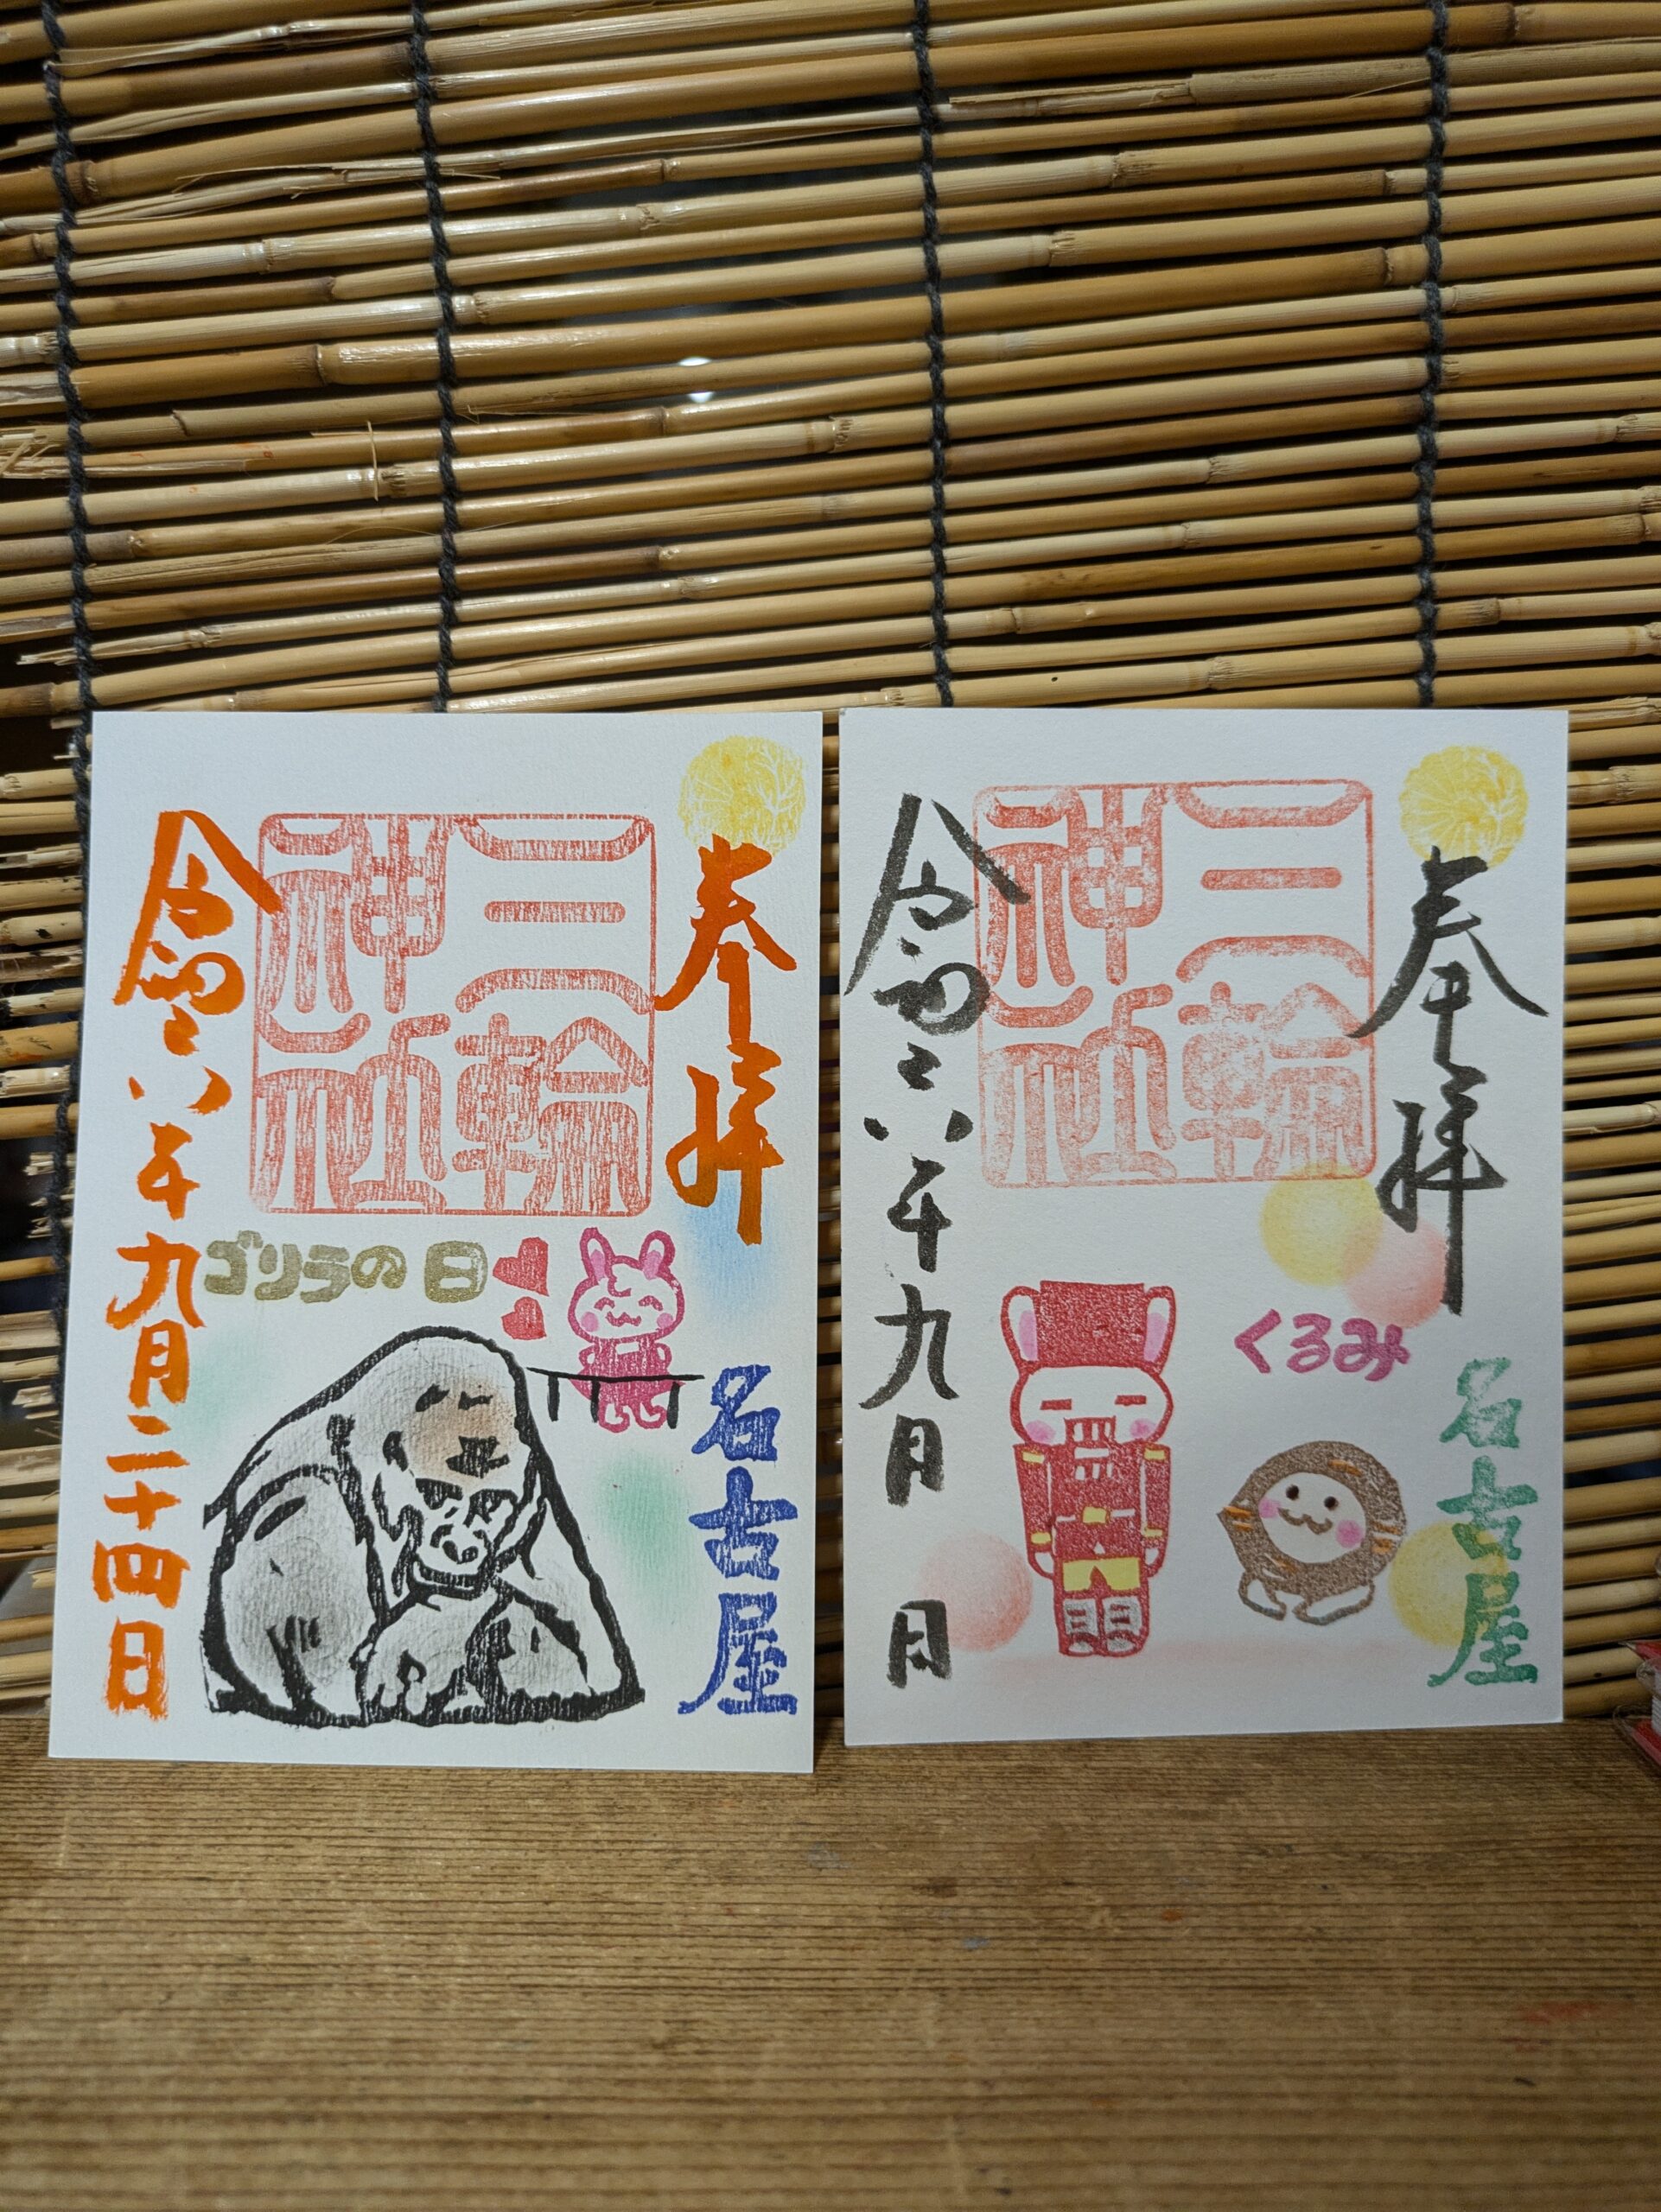 奉拝
名古屋
三輪
神社
ゴリラの日
令和六年九月二十四日
奉拝
名古屋
三輪
神社
くるみ
令和六年九月 日